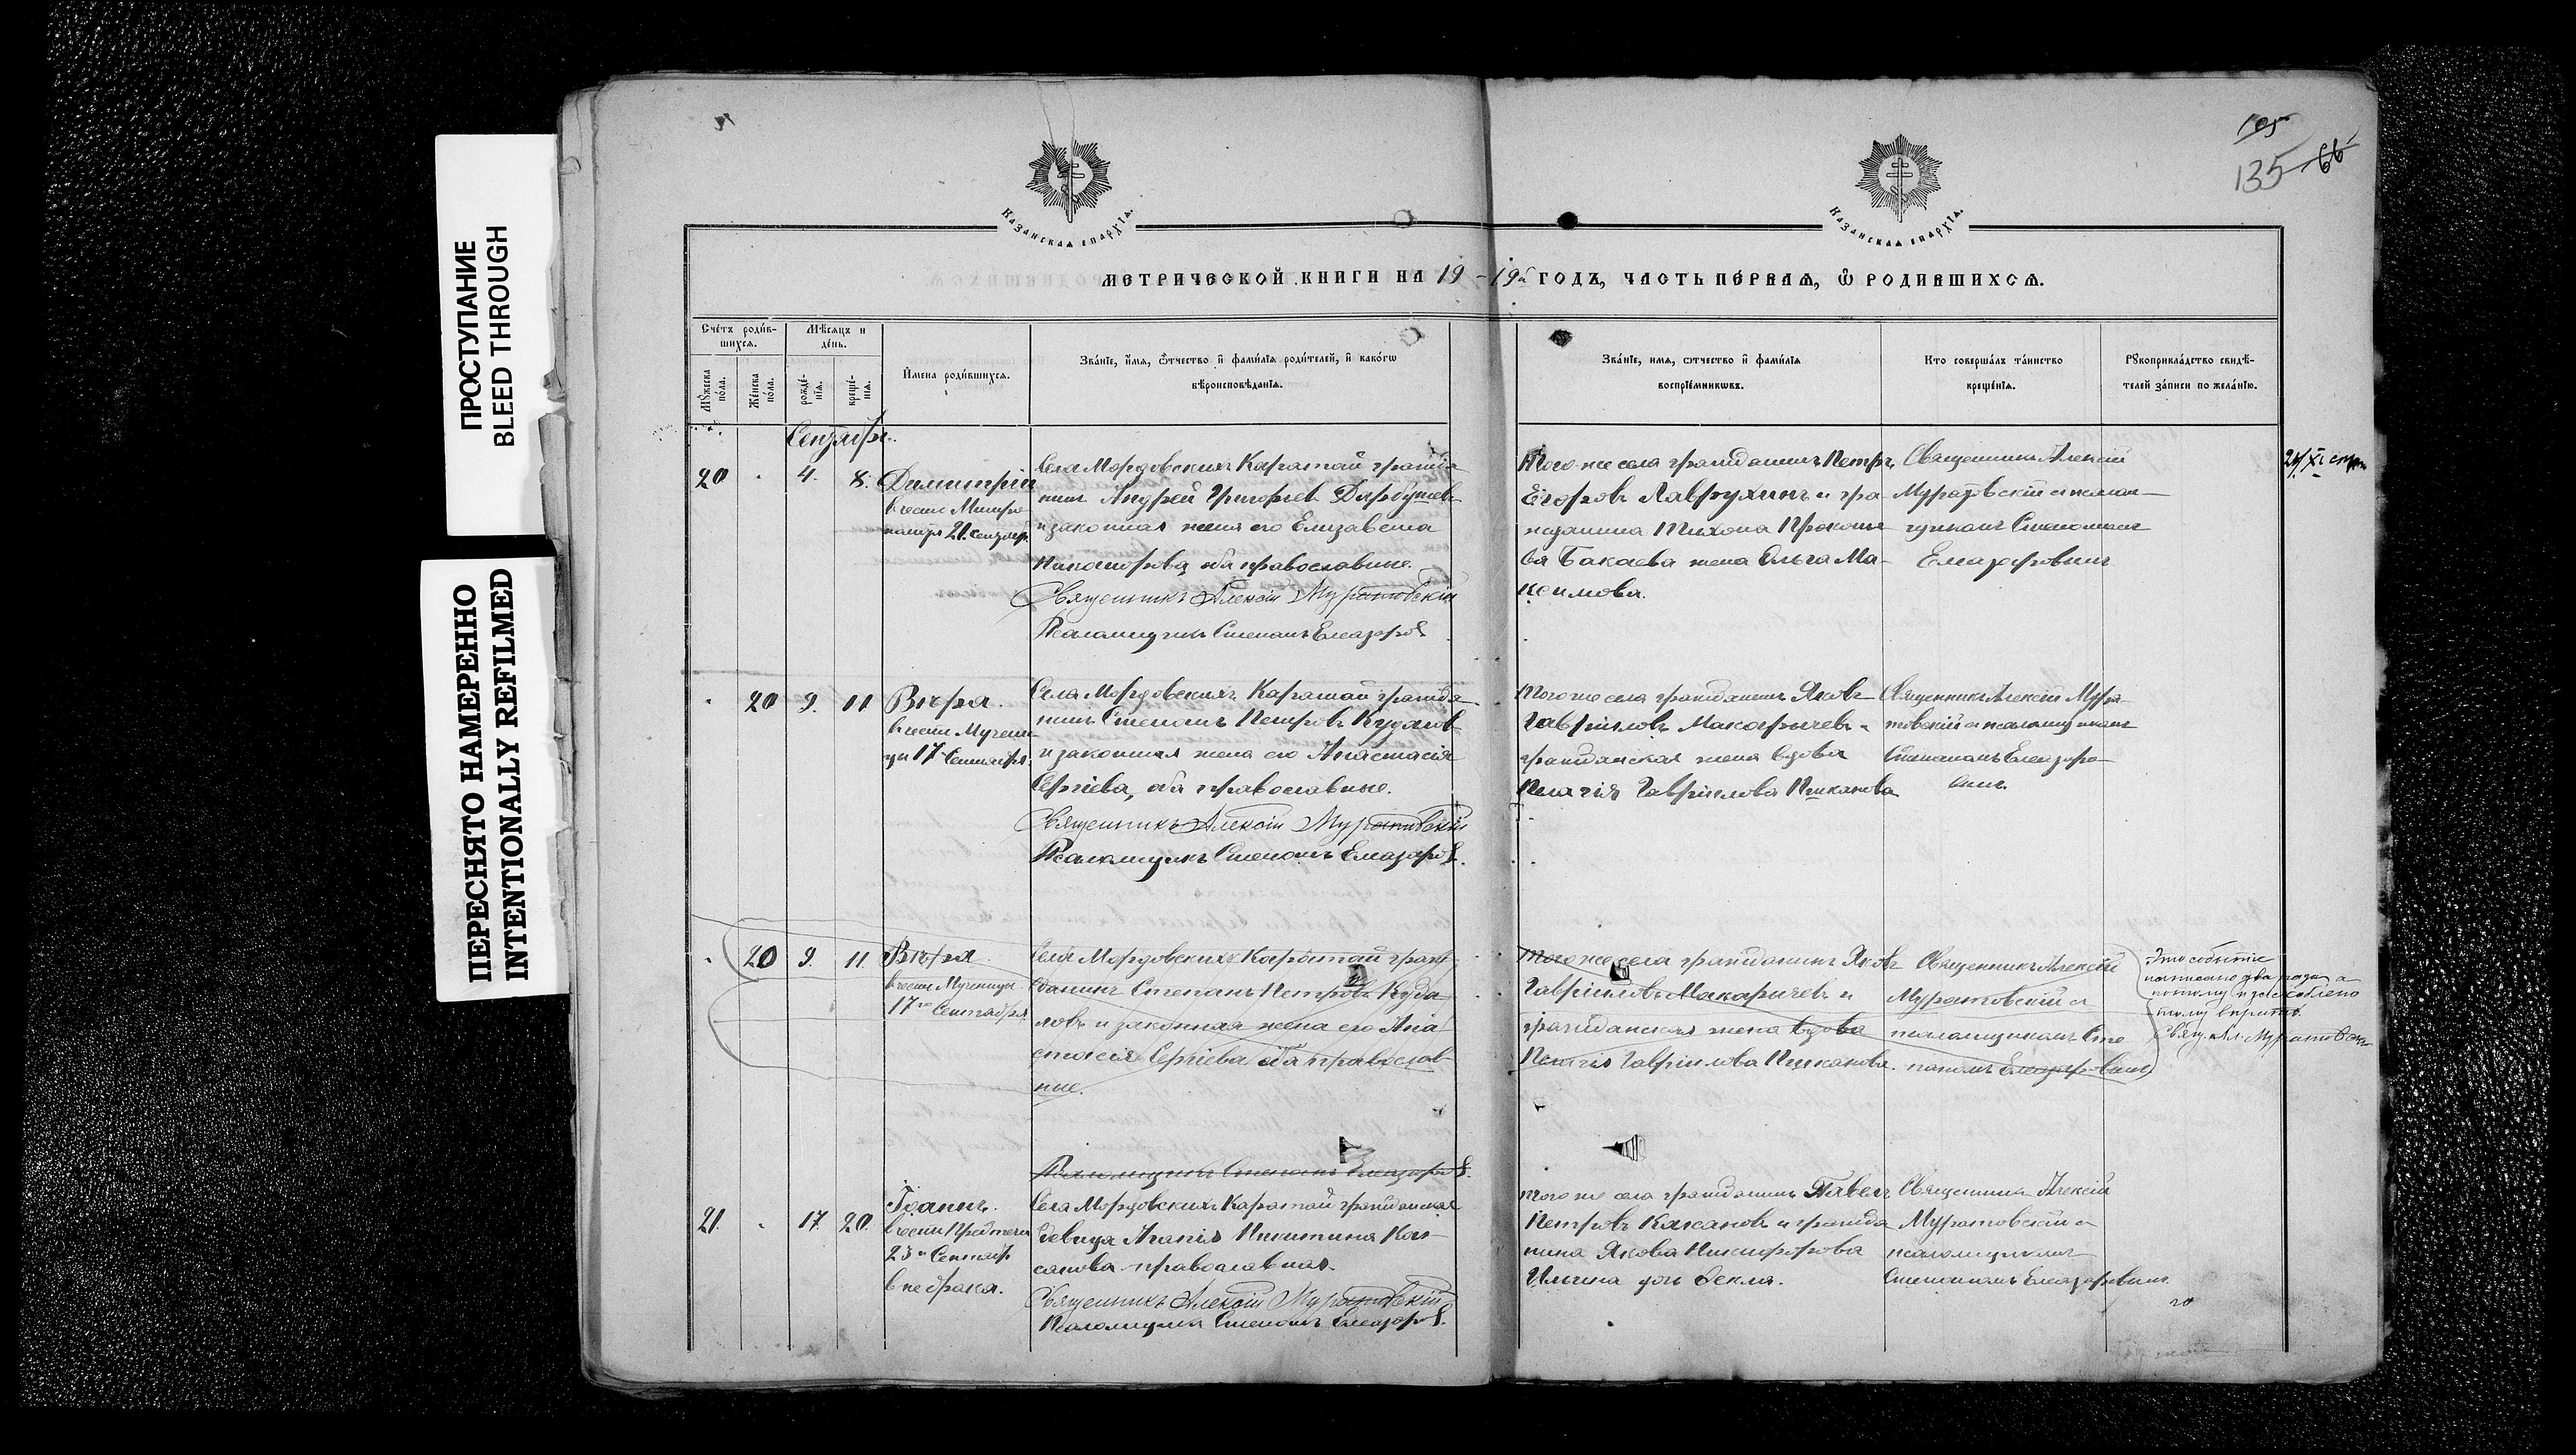 105
135 66
ПРОСТУПАНИЕ
BLEED THROUGH
ПЕРЕСНЯТО НАМЕРЕННО
INTENTIONALLY REFILMED
КАЗАНСКАЯ ЕПАРХІЯ.
КАЗАНСКАЯ ЕПАРХІЯ.
МЕТРИЧЕСКОЙ КНИГИ НА 19-19й ГОДЪ, ЧАСТЬ ПЕ́РВАЯ, Ѿ РОДИВШИХСѦ.
Сче́тъ роди́в-
шихсѧ.
Мѣ́сѧцъ и
де́нь.
Мꙋ́жеска
по́ла.
Же́нска
по́ла.
рожде́-
нїѧ.
креще́-
нїѧ.
И҆мена̀ роди́вшихсѧ.
Зва́нїе, и҆́мѧ, ѻ҆́тчество и҆ фами́лїѧ роди́телей, и҆ како́гѡ
вѣроисповѣ́данїѧ.
Зва́нїе, имѧ, ѻтчество и҆ фами́лїѧ
воспрїе́мникѡвъ.
Кто соверша́лъ та́инство
креще́нїѧ.
Рꙋкоприкла́дство свидѣ́-
телей за́писи по жела́нїю.
Сентября.
20 . 4. 8. Димитрій
в честь Митро
21. Сентяб.
Села Мордовскихъ Каратай гражда
нинъ Андрей Григорьев
и законная жена его Елизавета
Никанорова, оба православные.
Священникъ Алексій Муратовскій
Псаломщикъ Степанъ Елеазаров
Того же села гражданинъ Петръ
Егоровъ Лаврухинъ и гра-
жданина Тихона Прокопь-
ва Бакаева жена Ольга Ма-
ксимова.
Священникъ Алексій
Муратовскій с псалом-
щикомъ Степаномъ
Елеазаровым
. 20 9. 11 Вѣра.
в честь Мучени
цы 17 Сентября.
Села Мордовскихъ Каратай гражда-
нинъ Степанъ Петровъ Кудалов
и законная жена его Анастасія
Сергіева, оба православные.
Священникъ Алексій Муратовскій
Псаломщикъ Степанъ Елеазаров.
Того же села гражданинъ Яковъ
Гавріиловъ Макарычевъ и
гражданская жена вдова
Пелагія Гавріилова Пиканова
Священникъ Алексій Мура-
товскій с псаломщикомъ
Степаномъ Елеазаро-
вымъ.
. 20 9. 11 Вѣра.
в честь Мученицы
17го Сентября.
Села Мордовскихъ Каратай граж
данинъ Степанъ Петровъ Куда
ловъ и законная жена его Ана
стасія Сергіева оба православ-
ные.
Того же села гражданинъ Яковъ
Гавріиловъ Макаричевъ и
гражданская жена вдова
Пелагія Гавріилова Пиканова.
Священникъ Алексій
Муратовскій с
псаломщикомъ Сте
паномъ Елеазаровым
Это событіе
написано два раза, а
потому
Свящ. Ал. Муратовскій
Псаломщикъ Степанъ Елеазаров.
21. . 17 20 Іоаннъ.
в честь Предтечи
23го Сентяб.
внебрачн.
Села Мордовскихъ Каратай гражданская
девица Агапія Никитина Ка-
санова православная.
Священникъ Алексій Муратовскій
Псаломщикъ Степанъ Елеазаров.
Того же села гражданинъ Павелъ
Петровъ Касановъ и гражда
нина Якова Никифорова
Ильина дочь Ѳекла.
Священникъ Алексій
Муратовскій с
псаломщикомъ
Степаномъ Елеазаровым.